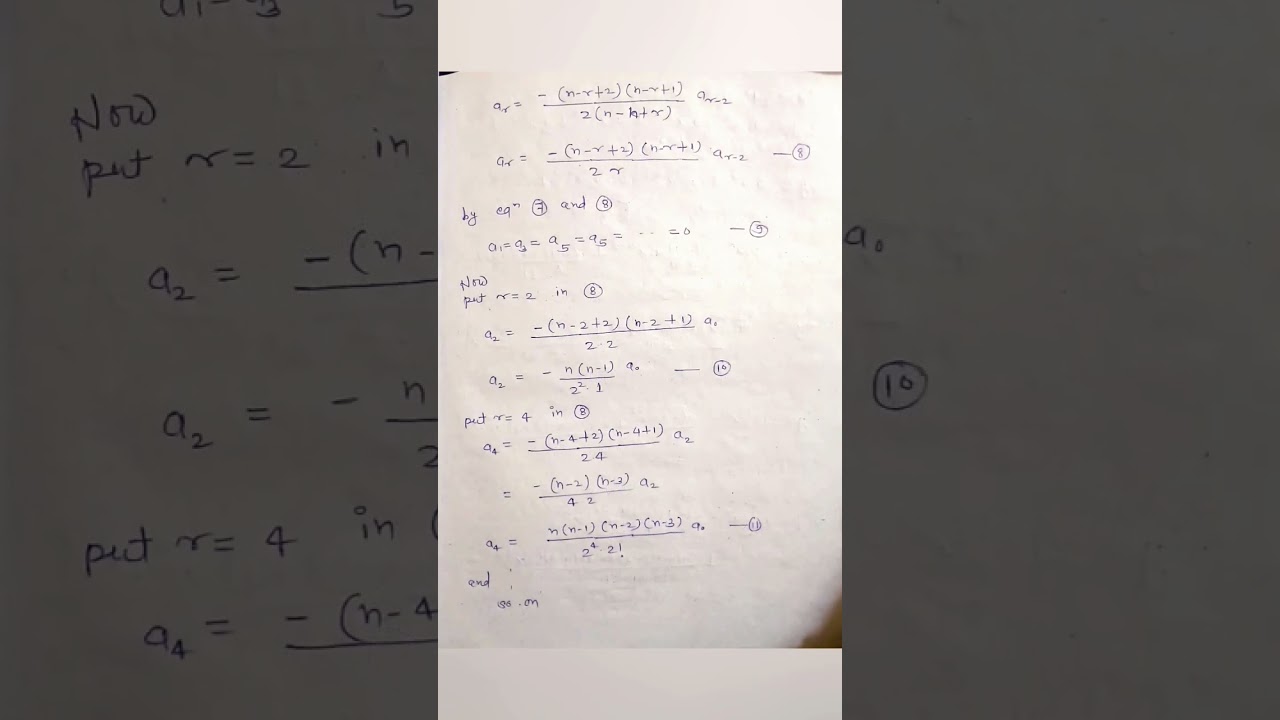 aᵣ = -(n-r+2)(n-r+1) / 2(n-n+r) aᵣ₋₂
aᵣ = -(n-r+2)(n-r+1) / 2 r aᵣ₋₂ — ⑧
by eqⁿ ⑦ and ⑧
a₁=a₃=a₅=a₅=.. =0 — ⑨
Now
put r=2 in ⑧
a₂ = -(n-2+2)(n-2+1) / 2·2 a₀
a₂ = - n(n-1) / 2²·1 a₀ — ⑩
put r=4 in ⑧
a₄ = -(n-4+2)(n-4+1) / 2 4 a₂
= -(n-2)(n-3) / 4 2 a₂
a₄ = n(n-1)(n-2)(n-3) / 2⁴·2! a₀ — ⑪
and
so on
Now
put r=2 in
a₂ = -(n-
a₀
a₂ = - n
2
⑩
put r=4 in (
a₄ = -(n-4